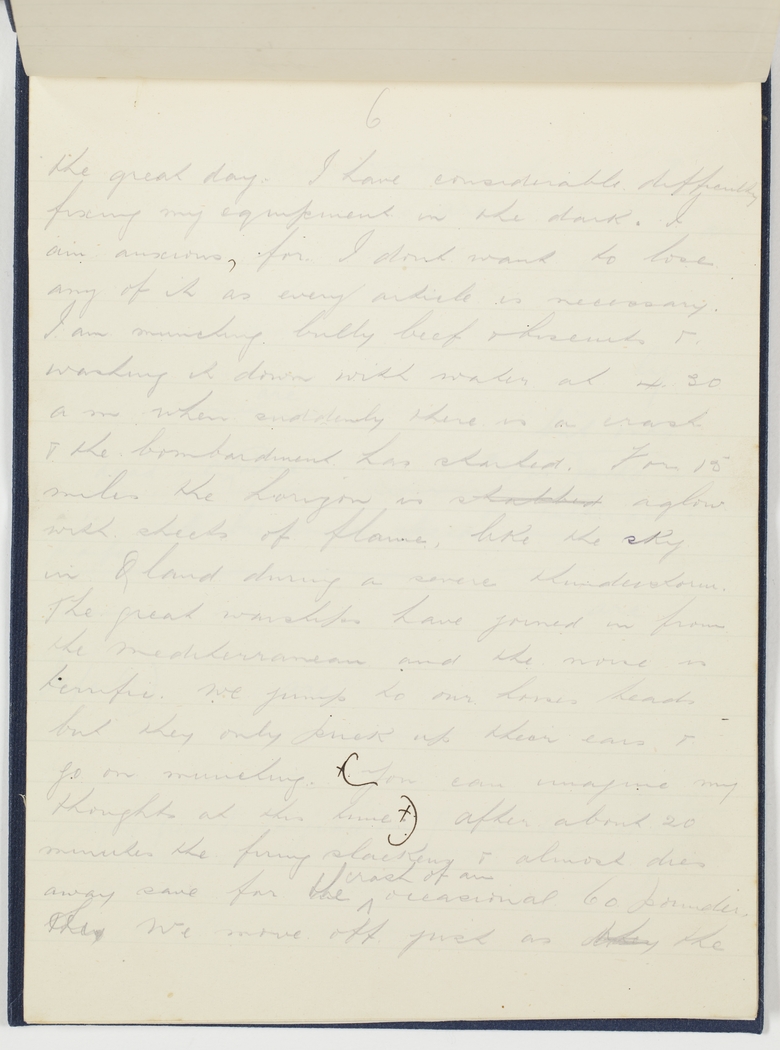 6
the great day. I have considerable difficulty
fixing my equipment in the dark. I
am anxious, for I dont want to lose
any of it as every article is necessary.
I am munching bully beef & biscuits &
washing it down with water at 4.30
a m when suddenly there is a crash
& the bombardment has started. For 15
miles the horizon is stabbed aglow
with sheets of flame, like the sky
in Qland during a severe thunderstorm.
The great warships have joined in from
the mediterranean and the noise is
terrific. We jump to our horses heads
but they only prick up their ears &
go on munching. (You can imagine my
thoughts at this time) After about 20
minutes the firing slackens & almost dies
away save for the crash of an occasional 60 pounder.
They We move off just as they the